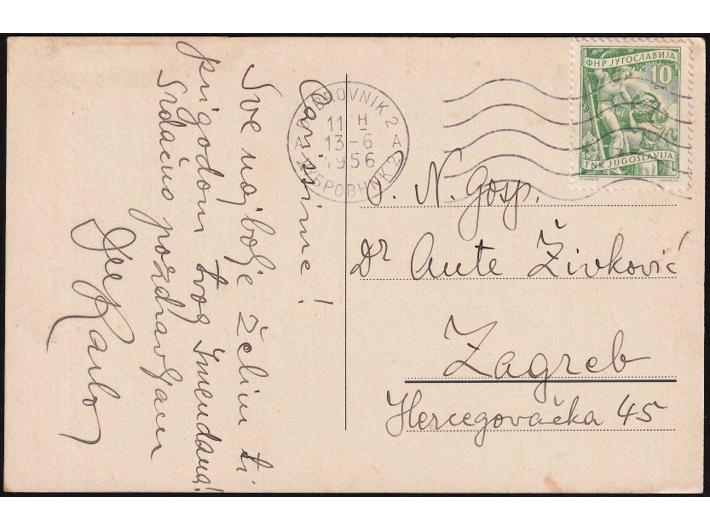 Carissime!
Sve najbolje želim ti
prigodom tvog Imendana!
Srdačno pozdravljam
Karlo
DUBROVNIK 2
11 H
13-6
1956
A
ДУБРОВНИК 2
ФНР ЈУГОСЛАВИЈА
10
FNR JUGOSLAVIJA
P. N. Gosp.
Dr Ante Živković
Zagreb
Hercegovačka 45